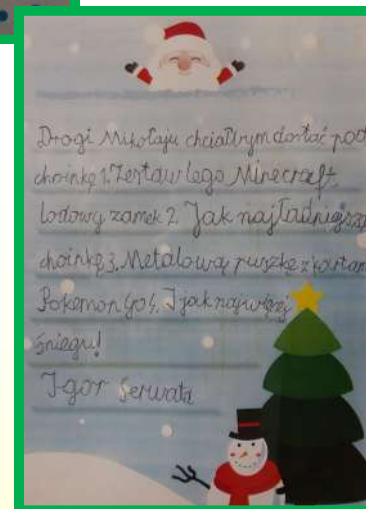 Drogi Mikołaju chciałbym dostać pod
choinkę 1. Zestaw Lego Minecraft
lodowy zamek 2. Jak najładniejszą
choinkę 3. Metalową puszkę z kartam
Pokemon Go 4. I jak najwięcej
śniegu!
Igor Serwata